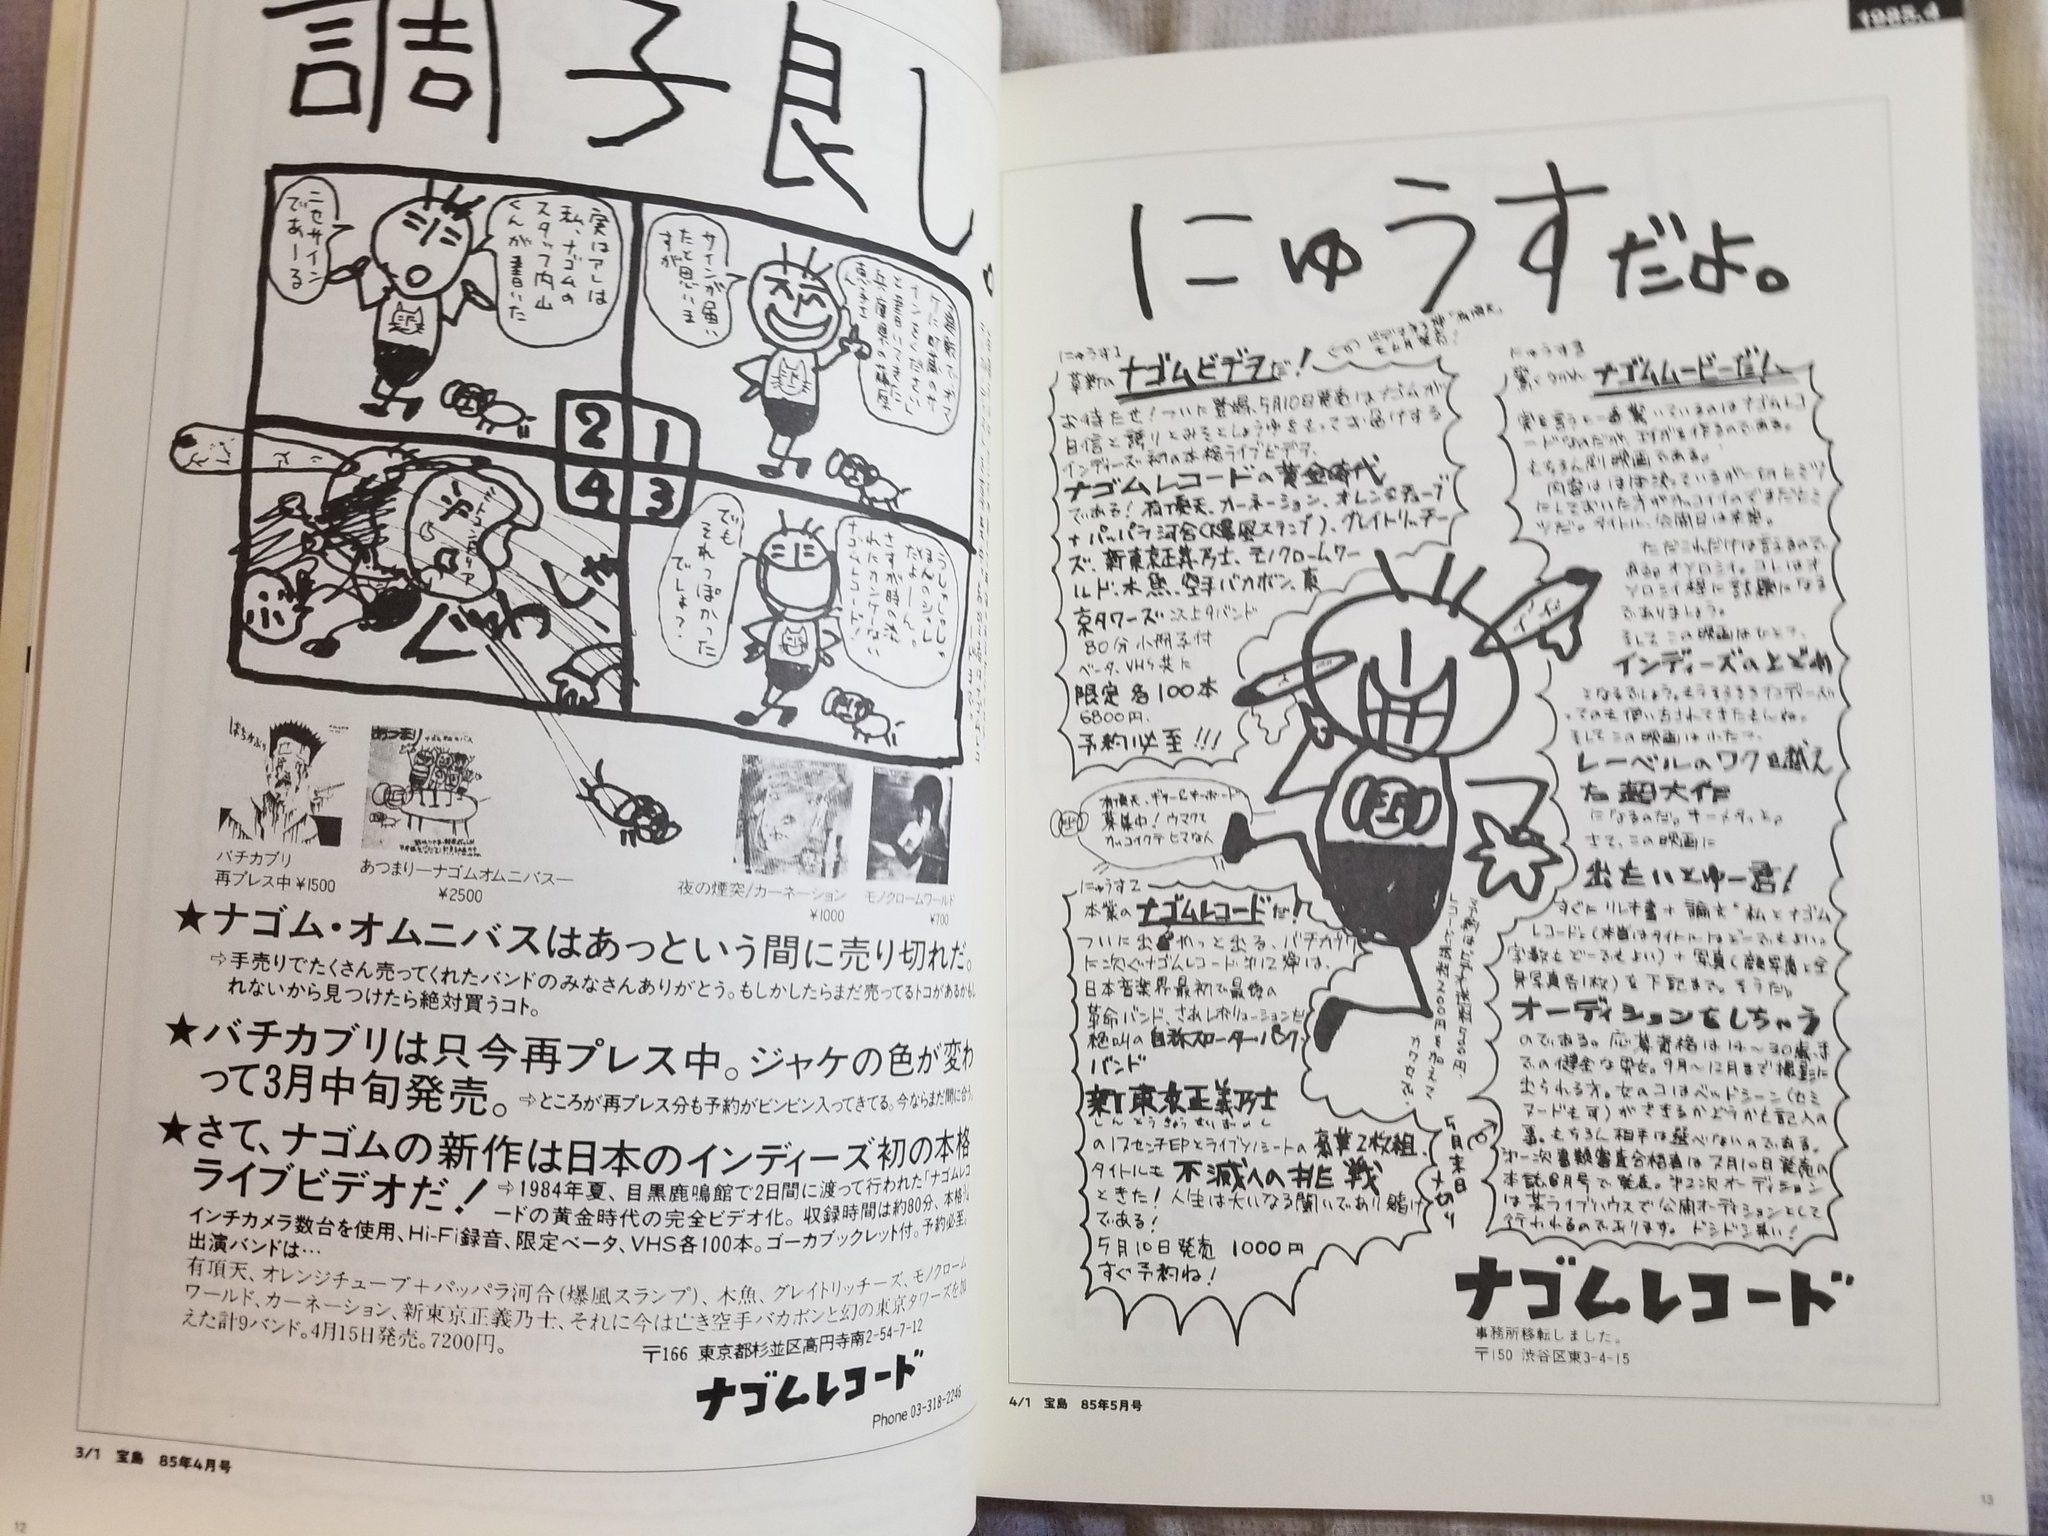 調子良し。
サインが届い
たと思いま
すが
実はアレは
私、ナゴムの
スタッフ内山
くんが書いた
ニセサイン
であーる
1
2
3
4
うしゃしゃしゃ。
ほんのシャレ
だよーん。
さすが時の流
れにカンケーない
ナゴムレコード!
でも
それっぽかった
でしょ?
ぐわしゃ
ばちかぶり
バチカブリ
再プレス中 ¥1500
あつまり
あつまりーナゴムオムニバスー
¥2500
夜の煙突/カーネーション
¥1000
モノクロームワールド
¥700
★ナゴム・オムニバスはあっという間に売り切れだ。
⇨手売りでたくさん売ってくれたバンドのみなさんありがとう。もしかしたらまだ売ってるトコがあるかも
れないから見つけたら絶対買うコト。
★バチカブリは只今再プレス中。ジャケの色が変わ
って3月中旬発売。⇨ところが再プレス分も予約がビンビン入ってきてる。今ならまだ間に合う。
★さて、ナゴムの新作は日本のインディーズ初の本格
ライブビデオだ!⇨1984年夏、目黒鹿鳴館で2日間に渡って行われた「ナゴムレコ
ードの黄金時代の完全ビデオ化。収録時間は約80分、本格
インチカメラ数台を使用、Hi-Fi録音、限定ベータ、VHS各100本。ゴーカブックレット付。予約必至。
出演バンドは…
有頂天、オレンジチューブ+パッパラ河合(爆風スランプ)、木魚、グレイトリッチーズ、モノクローム
ワールド、カーネーション、新東京正義乃士、それに今は亡き空手バカボンと幻の東京タワーズを加
えた計9バンド。4月15日発売。7200円。
〒166 東京都杉並区高円寺南2-54-7-12
ナゴムレコード
Phone 03-318-2246
3/1 宝島 85年4月号
12
1985.4
にゅうすだよ。
にゅうす1
革新のナゴムビデヲだ!
お待たせ!ついに登場、5月10日発売はナゴムが
自信と誇りとみそとしょうゆをもってお届けする
インディーズ初の本格ライブビデヲ、
ナゴムレコードの黄金時代
である!有頂天、カーネーション、オレンヂチューブ
+パッパラ河合(爆風スランプ)、グレイトリッチー
ズ、新東京正義乃士、モノクロームワー
ルド、木魚、空手バカボン、東
京タワーズ 以上9バンド
80分小冊子付
ベータ、VHS共に
限定各100本
6800円、
予約必至!!!
有頂天、ギター&キーボード
募集中!ウマクて
カッコイクテヒマな人
にゅうす2
本業のナゴムレコードだ!
ついに出るやっと出る、バチカブリ
に次ぐナゴムレコード第12弾は、
日本音楽界最初で最後の
革命バンド、されレボリューションだ
絶叫の自称スローター・パンク・
バンド
新東京正義乃士
しんとうきょうせいぎのし
の17センチEPとライブソノシートの豪華2枚組、
タイトルも不滅への挑戦
ときた!人生は大いなる闘いであり賭け
である!
5月10日発売 1000円
すぐ予約ね!
にゅうす3
驚くなかれナゴムムービーだ!
実を言うと一番驚いているのはナゴムレコ
ードなのだが、エイガを作るのである。
もちろん劇映画である。
内容はほぼ決っているが一切ヒミツ
にしておいた方がカッコイイのでまだヒミ
ツだ。タイトル、公開日は未定。
ただこれだけは言えるので
ある。オソロシイ。コレはオ
ソロシイ程に話題になる
でありましょう。
そしてこの映画はひとつ、
インディーズのとどめ
となるでしょう。
そしてこの映画はふたつ、
レーベルのワクを越え
た超大作
になるのだ。オーメデッと。
さて、この映画に
出たいとゆー君!
すぐにリレキ書+論文“私とナゴム
レコード”(本当はタイトルはどーでもよい。
字数もどーでもよい)+写真(顔写真と全
身写真各1枚)を下記まで。そうだ。
オーディションをしちゃう
のである。応募資格は14〜30歳ま
での健全な男女。9月〜12月まで撮影に
出られる方。女のコはベッドシーン(セミ
ヌードも可)ができるかどうかも記入の
事。もちろん相手は選べないのである。
第一次書類審査合格者は7月10日発売の
本誌8月号で発表。第2次オーディション
は某ライブハウスで公開オーディションとして
行われるのであります。ドシドシ来い!
5月末日〆切り
ナゴムレコード
事務所移転しました。
〒150 渋谷区東3-4-15
4/1 宝島 85年5月号
13